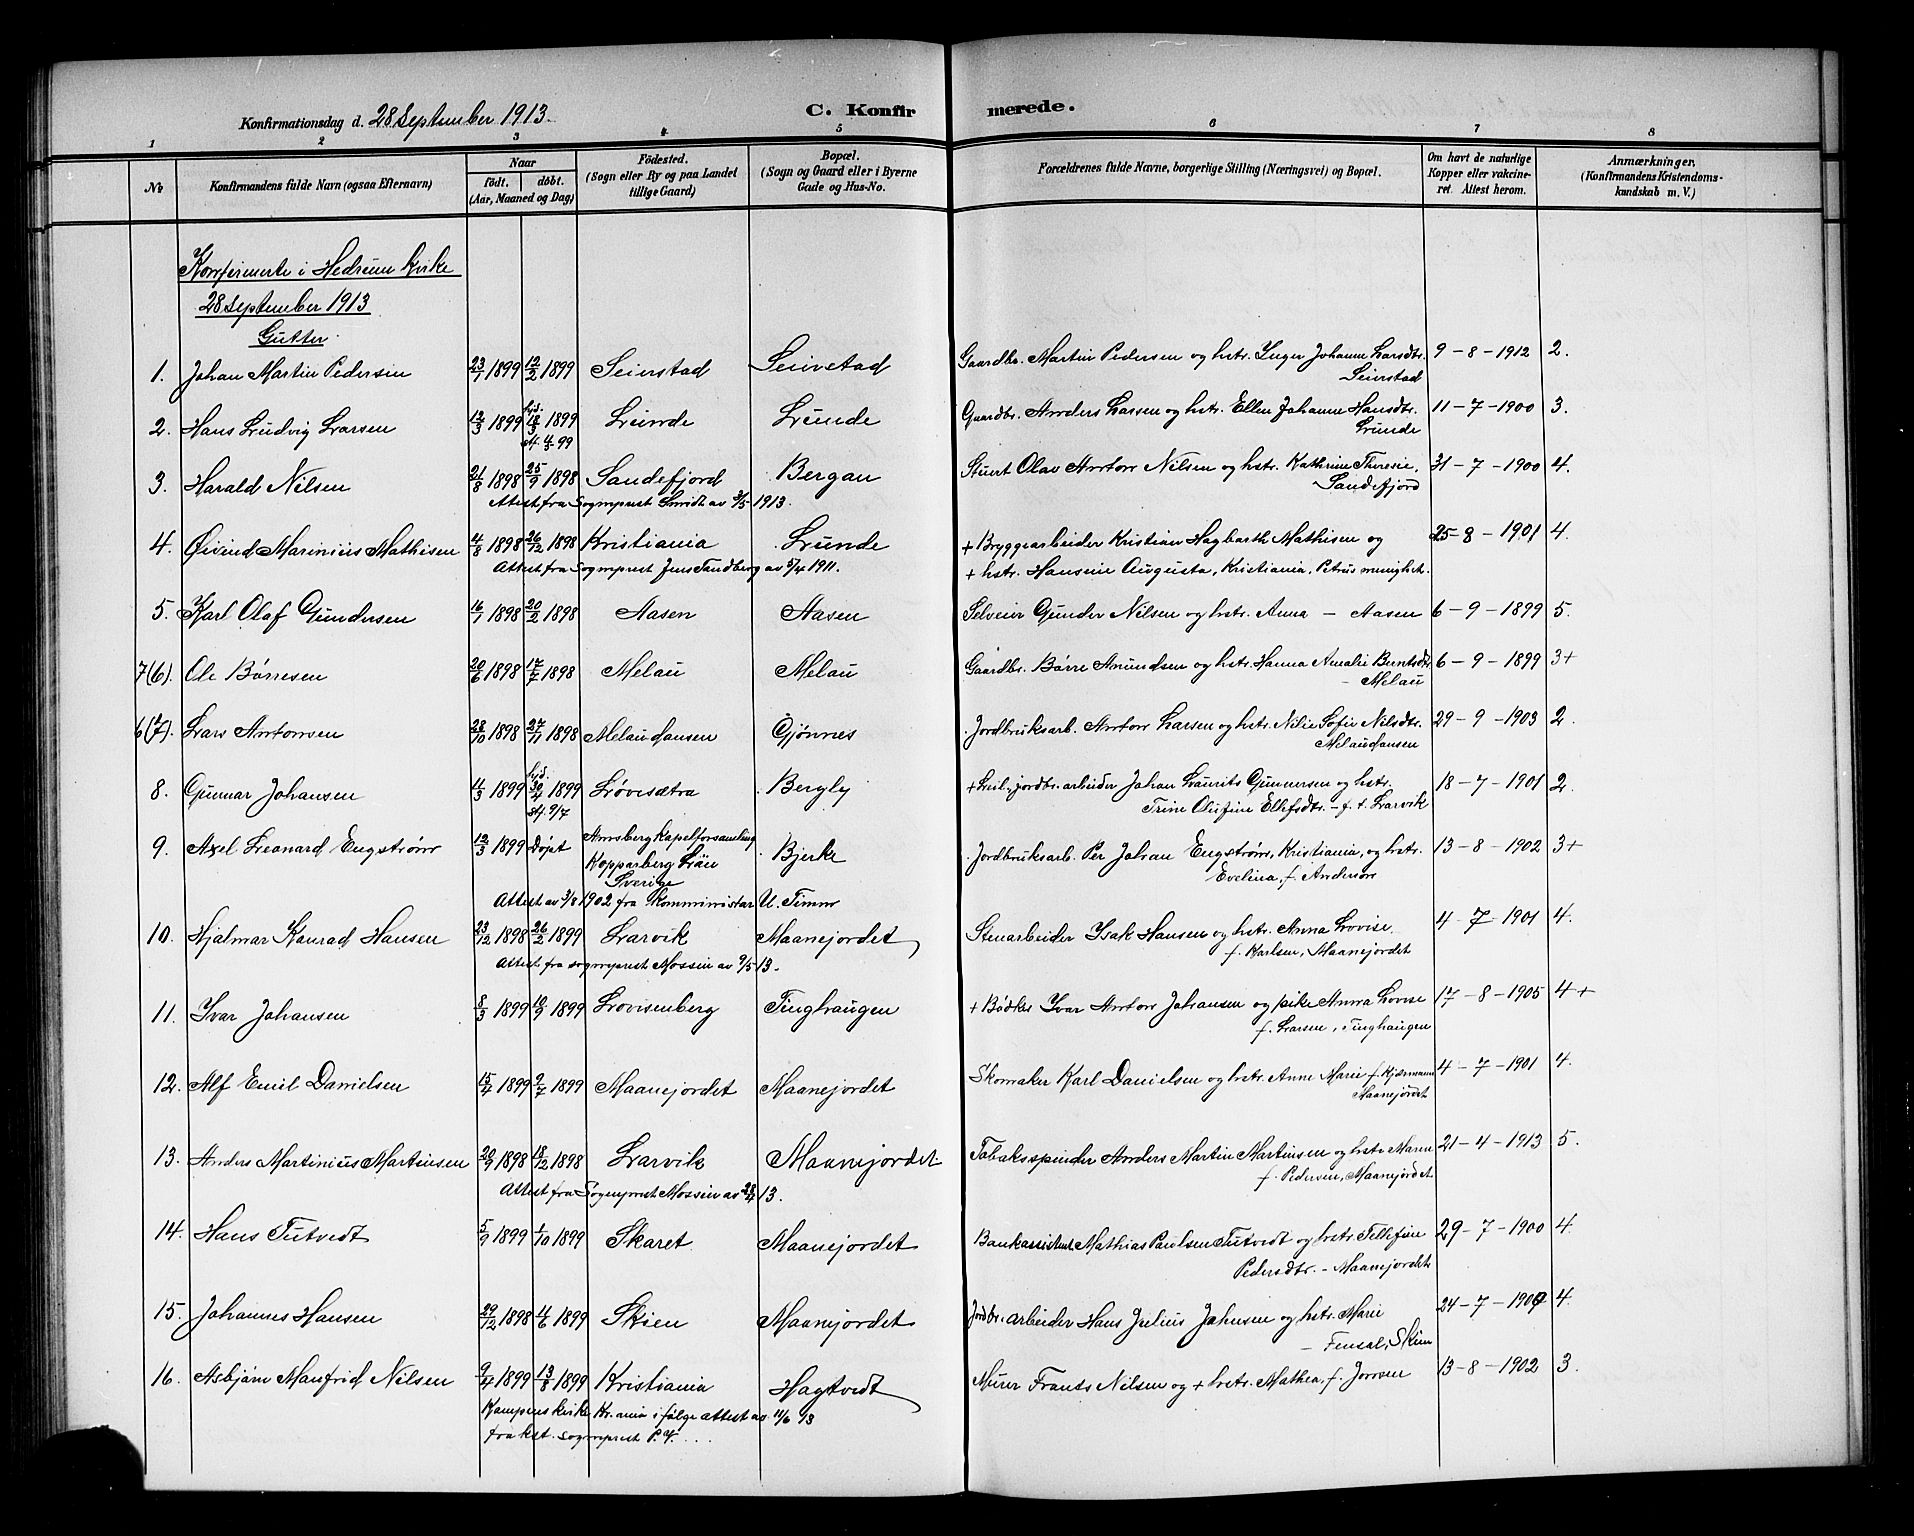 Konfirmationsdag d. 28 September 1913.
C. Konfirmerede.
1 2 3 4 5 6 7 8
No
Konfirmandens fulde Navn (ogsaa Efternavn)
Naar
födt. döbt.
(Aar, Maaned og Dag)
Födested.
(Sogn eller By og paa Landet
tillige Gaard)
Bopæl.
(Sogn og Gaard eller i Byerne
Gade og Hus-No.
Forœldrenes fulde Navne, borgerlige Stilling (Næringsvei) og Bopœl.
Om havt de naturlige
Kopper eller vakcine-
ret. Attest herom.
Anmærkninger,
(Konfirmandens Kristendoms-
kundskab m.V.)
Konfirmerte i Hedrum kirke
28 September 1913
Gutter.
1. Johan Martin Pedersen 23/1 1899 12/2 1899 Seierstad Seierstad Gaardbr. Martin Pedersen og hstr. Inger Johanne Larsdtr. 9-8-1912 2.
Seierstad
2. Hans Ludvig Larsen 12/3 1899 hjd. 18/3 1899 Lunde Lunde Gaardbr. Anders Larsen og hstr. Ellen Johanne Hansdtr. 11-7-1900 3.
Lunde
3. Harald Nilsen 21/8 1898 25/9 1898 Sandefjord Bergan Stuert Olav Anton Nilsen og hstr. Kathrine Theresie, 31-7-1900 4.
Sandefjord
Attest fra Sogneprest Smidt av 3/5 1913.
4. Øivind Marinius Mathisen 4/8 1898 26/12 1898 Kristiania Lunde + Bryggearbeider Kristian Hagbarth Mathisen og 25-8-1901 4.
Attest fra Sogneprest Jens Tandberg av 5/4 1911. + hstr. Hansine Augusta, Kristiania, Petrus menighet.
5. Karl Olaf Gundersen 16/1 1898 20/2 1898 Aasen Aasen Selveier Gunder Nilsen og hstr. Anna - Aasen 6-9-1899 5.
7(6). Ole Børresen 20/6 1898 17/7 1898 Melau Melau Gaardbr. Børre Amundsen og hstr. Hanna Amalie Berntsdtr. 6-9-1899 3+
- Melau
6(7). Lars Antonsen 28/10 1898 27/11 1898 Melauhausen Gjønnes Jordbruksarb. Anton Larsen og hstr. Nilie Sofie Nilsdtr. 29-9-1903 2.
Melauhausen
8. Gunnar Johansen 11/3 1899 hjd. 30/4 1899 Løvesætra Bergly + Leil., jordbr.arbeider Johan Laurits Gunnersen og hstr. 18-7-1901 2.
st. 9/7 Trine Olufine Ellefsdtr. - f. t. Larvik
9. Axel Leonard Engstrøm 12/3 1899 Døpt Amsberg Kapelforsamling Bjerke Jordbruksarb. Per Johan Engstrøm, Kristiania, og hstr. 13-8-1902 3+
Kopparberg Län Evelina, f. Anderson
Sverige
Attest av 3/8 1902 fra Komminister U. Timm
10. Hjalmar Konrad Hansen 23/12 1898 26/2 1899 Larvik Maanejordet Stenarbeider Isak Hansen og hstr. Anna Lovise, 4-7-1901 4.
f. Karlsen, Maanejordet
Attest fra sogneprest Mossin av 9/5 13.
11. Ivar Johansen 8/3 1899 10/9 1899 Lovisenberg Tinghaugen + Bødker Ivar Anton Johansen og pike Anna Lovise 17-8-1905 4+
f. Larsen, Tinghaugen
12. Alf Emil Danielsen 15/4 1899 2/7 1899 Maanejordet Maanejordet Skomaker Karl Danielsen og hstr. Anne Marie f. Kjærmann 4-7-1901 4.
Maanejordet
13. Anders Martinius Martinsen 20/9 1898 18/12 1898 Larvik Maanejordet. Tobaksspinder Anders Martin Martinsen og hstr. Maren 21-4-1913 5.
f. Pedersen, Maanejordet
Attest fra Sogneprest Mossin av 28/4 13.
14. Hans Tutvedt 5/9 1899 1/10 1899 Skaret Maanejordet Bankassistent Mathias Paulsen Tutvedt og hstr. Tellefine 29-7-1900 4.
Pedersdtr. - Maanejordet
15. Johannes Hansen 29/12 1898 4/6 1899 Skien Maanejordet Jordbr. arbeider Hans Julius Johnsen og hstr. Marie 24-7-1900 4.
- Fensal, Skien
16. Asbjørn Manfrid Nilsen 9/4 1899 13/8 1899 Kristiania Hagtvedt Murer Frants Nilsen og + hstr. Mathea, f. Jonsen 13-8-1902 3.
Kampens kirke Kr.ania ifølge attest av 11/6 13
fra kst. sogneprest P. Y. ....